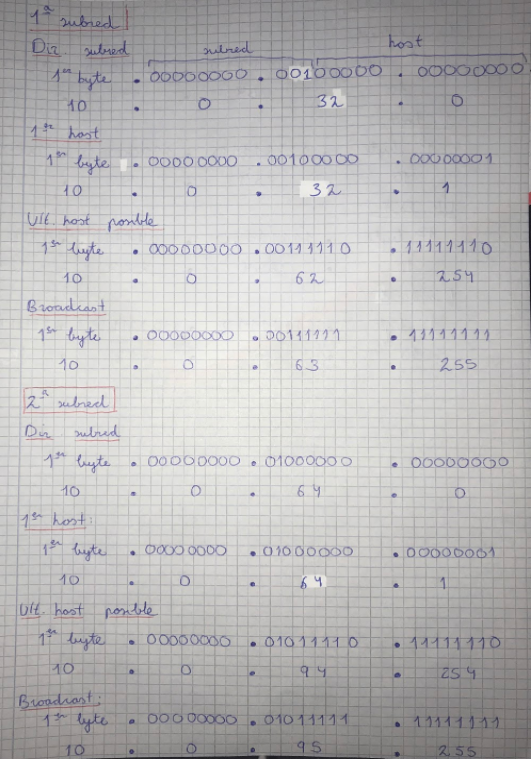 1ª subred
Dir subred subred host
1er byte . 00000000 . 00100000 . 00000000
10 . 0 . 32 . 0
1er host
1er byte . 00000000 . 00100000 . 00000001
10 . 0 . 32 . 1
Ult. host posible
1er byte . 00000000 . 00111110 . 11111110
10 . 0 . 62 . 254
Broadcast
1er byte . 00000000 . 00111111 . 11111111
10 . 0 . 63 . 255
2ª subred
Dir subred
1er byte . 00000000 . 01000000 . 00000000
10 . 0 . 64 . 0
1er host:
1er byte . 00000000 . 01000000 . 00000001
10 . 0 . 64 . 1
Ult. host posible
1er byte . 00000000 . 01011110 . 11111110
10 . 0 . 94 . 254
Broadcast:
1er byte . 00000000 . 01011111 . 11111111
10 . 0 . 95 . 255